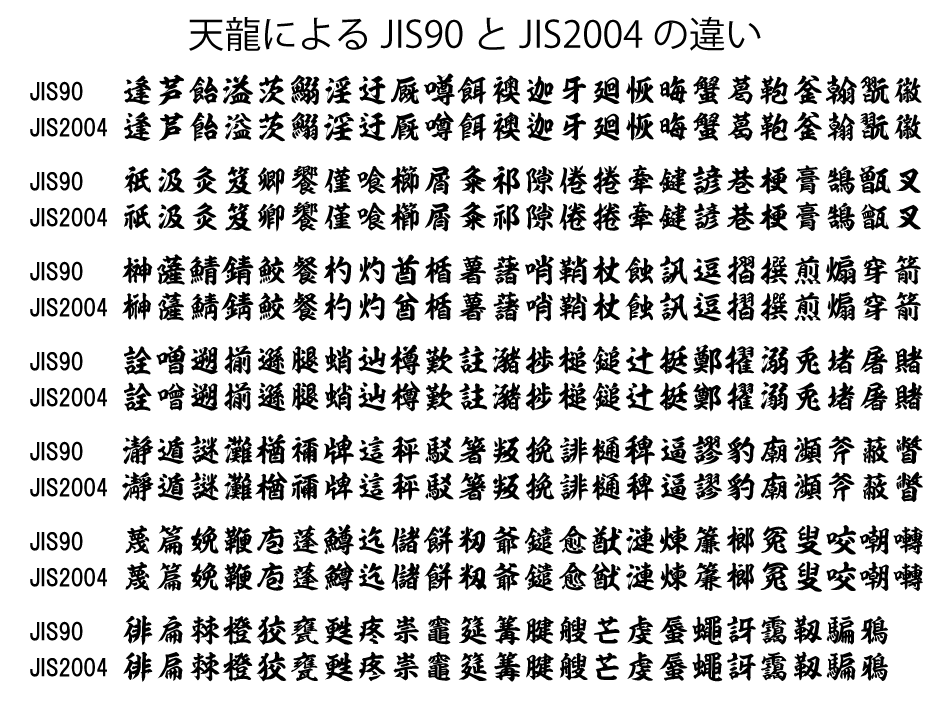 天龍による JIS90 と JIS2004 の違い
JIS90 逢芦飴溢茨鰯淫迂厩噂餌襖迦牙廻恢晦蟹葛鞄釜翰翫徽
JIS2004 逢芦飴溢茨鰯淫迂厩噂餌襖迦牙廻恢晦蟹葛鞄釜翰翫徽
JIS90 祇汲灸笈卿饗僅喰櫛屑粂祁隙倦捲牽鍵諺巷梗膏鵠甑叉
JIS2004 祇汲灸笈卿饗僅喰櫛屑粂祁隙倦捲牽鍵諺巷梗膏鵠甑叉
JIS90 榊薩鯖錆鮫餐杓灼酋楯薯藷哨鞘杖蝕訊逗摺撰煎煽穿箭
JIS2004 榊薩鯖錆鮫餐杓灼酋楯薯藷哨鞘杖蝕訊逗摺撰煎煽穿箭
JIS90 詮噌遡揃遜腿蛸辿樽歎註瀦捗槌鎚辻挺鄭擢溺兎堵屠賭
JIS2004 詮噌遡揃遜腿蛸辿樽歎註瀦捗槌鎚辻挺鄭擢溺兎堵屠賭
JIS90 瀞遁謎灘楢禰牌這秤駁箸叛挽誹樋稗逼謬豹廟瀕斧蔽瞥
JIS2004 瀞遁謎灘楢禰牌這秤駁箸叛挽誹樋稗逼謬豹廟瀕斧蔽瞥
JIS90 蔑篇娩鞭庖蓬鱒迄儲餅籾爺鑓愈猷漣煉簾榔冤叟咬嘲囀
JIS2004 蔑篇娩鞭庖蓬鱒迄儲餅籾爺鑓愈猷漣煉簾榔冤叟咬嘲囀
JIS90 徘扁棘橙狡甕甦疼祟竈筵篝腱艘芒虔蜃蠅訝靄靱騙鴉
JIS2004 徘扁棘橙狡甕甦疼祟竈筵篝腱艘芒虔蜃蠅訝靄靱騙鴉